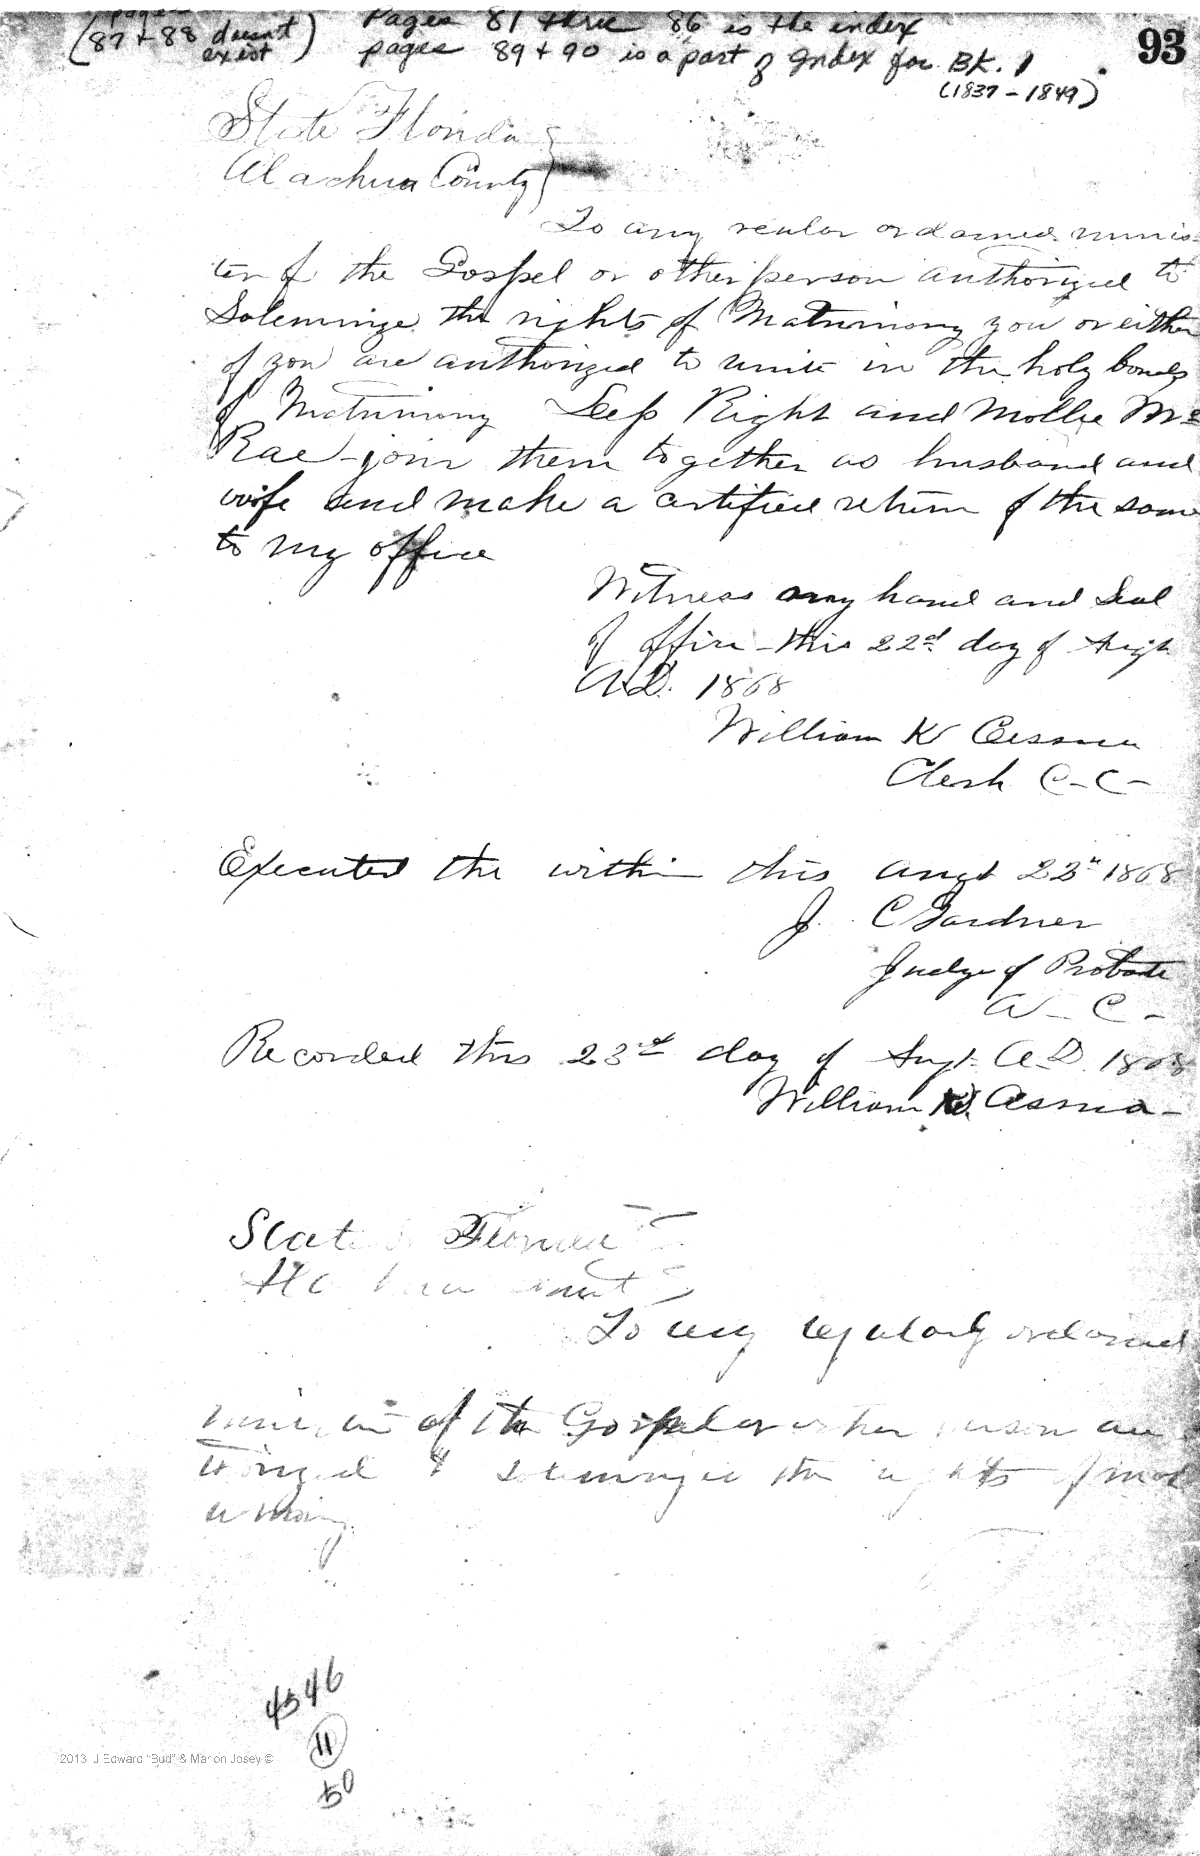 pages
(87 + 88 doesn't exist)
Pages 81 thru 86 is the index
pages 89 + 90 is a part of Index for BK. 1
(1837 - 1849)
93
State Florida
Alachua County
To any reular ordained minis-
ter of the Gospel or other person authorized to
Solemnize the rights of Matrimony you or either
of you are authorized to unite in the holy bonds
of Matrimony Right and Mollie Mc
Rae - join them together as husband and
wife and make a certified return of the same
to my office
Witness my hand and Seal
of office - this 22nd day of
A.D. 1868
William K Cessna
Clerk C-C-
Executed the within this Augt 23 1868
J. C Gardner
Judge of Probate
A - C -
Recorded this 23rd day of A.D. 1868
William K Cessna -
State Florida
To any regularly ordained
of the Gospel or other person au
thorized solemnize the rights of mat
4546
11
50
2013 J Edward "Bud" & Marion Josey ©